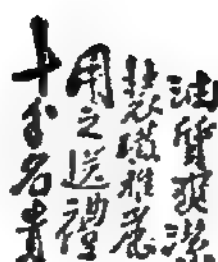 油質潔
裝璜雅麗
用之送禮
十分名貴